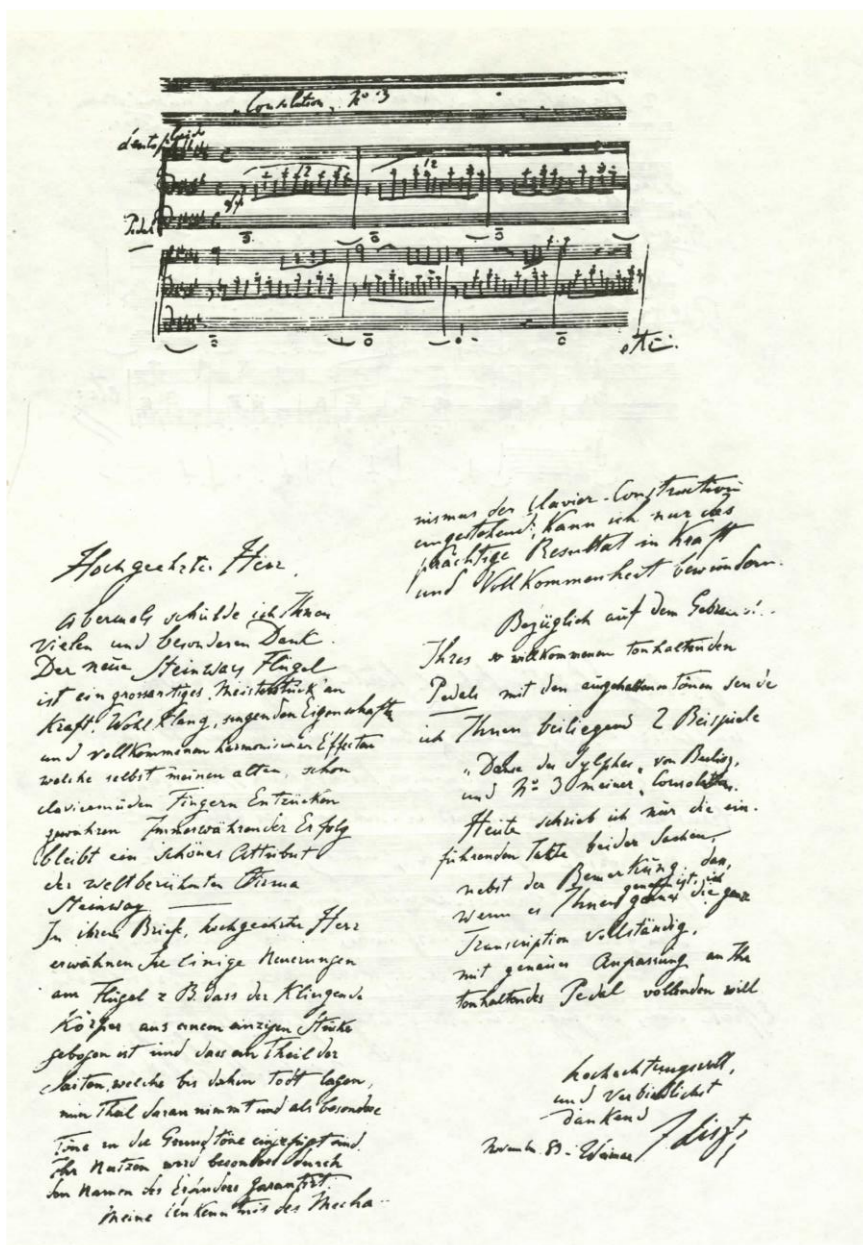 „Consolation“ Nº 3
Pedal
12
12
etc.
Hochgeehrter Herr,
Abermals schulde ich Ihnen
vielen und besonderen Dank.
Der neue Steinway Flügel
ist ein grossartiges Meisterstück an
Kraft, Wohlklang, singenden Eigenschaften
und vollkommenen harmonischen Effecten
welche selbst meinen alten, schon
claviermüden Fingern Entzücken
gewähren Immerwährender Erfolg
bleibt ein schönes Attribut
der weltberühmten Firma
Steinway
In ihrem Brief, hochgeehrter Herr
erwähnen Sie einige Neuerungen
am Flügel z B. dass der Klingende
Körper aus einem einzigen Stücke
gebogen ist und dass ein Theil der
Saiten, welche bis dahin todt lagen,
nun Theil daran nimmt und als besondere
Töne in die Grundtöne eingefügt sind.
Ihr Nutzen wird besonders durch
den Namen des Erfinders garantirt
Meine Unkenntnis des Mecha-
nismus der Clavier-Construction
eingestehend, Kann ich nur das
prächtige Resultat in Kraft
und Vollkommenheit bewundern.
Bezüglich auf dem Gebrauch
Ihres so willkommenen tonhaltenden
Pedals mit den ausgehaltenen tönen sende
ich Ihnen beiliegend 2 Beispiele
„Danse des Sylphes“ von Berlioz,
und Nº 3 meiner „Consolation.
Heute schrieb ich nur die ein-
führenden Takte beider Sachen,
nebst der Bemerkung, dass,
wenn es Ihnen genehm ist, ich gerne die ganze
Transcription vollständig,
mit genauer Anpassung an Ihr
tonhaltendes Pedal vollenden will
hochachtungsvoll,
und verbindlichst
dankend
November 83 - Weimar F. Liszt